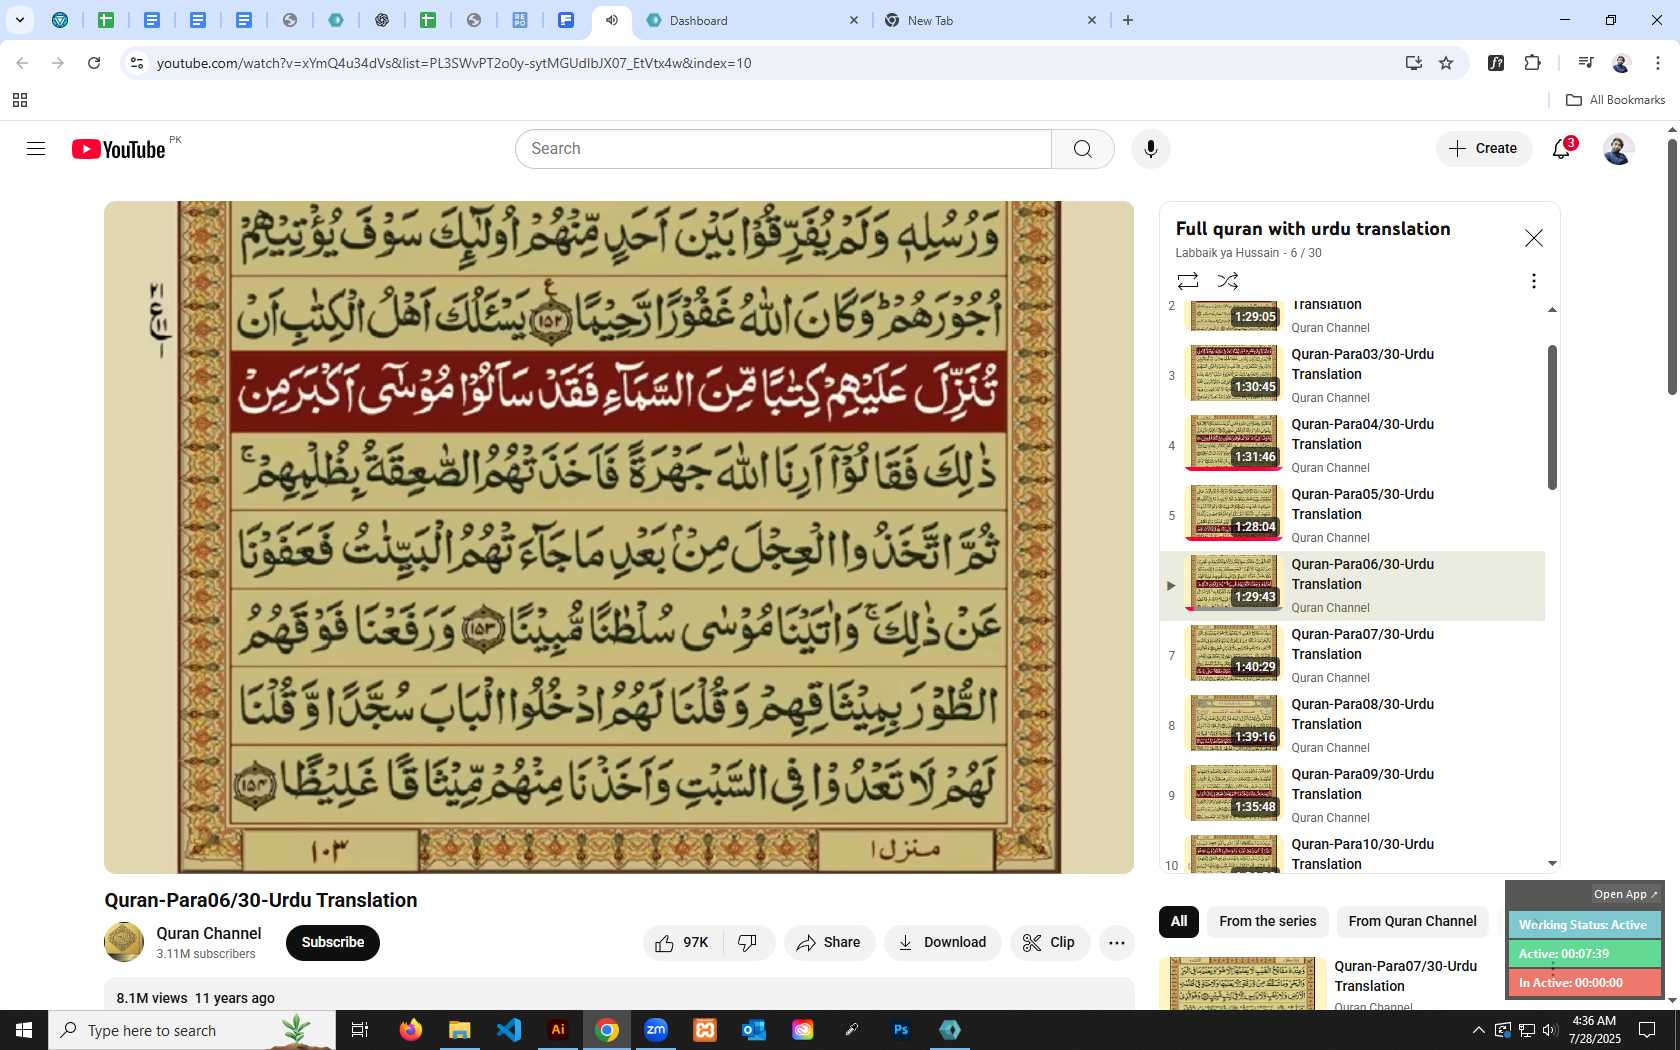 Dashboard
New Tab
youtube.com/watch?v=xYmQ4u34dVs&list=PL3SWvPT2o0y-sytMGUdlbJX07_EtVtx4w&index=10
All Bookmarks
YouTube PK
Search
Create
3
وَرُسُلِهٖ وَلَمْ يُفَرِّقُوْا بَيْنَ اَحَدٍ مِّنْهُمْ اُولٰٓئِكَ سَوْفَ يُؤْتِيْهِمْ
اُجُوْرَهُمْ ؕ وَكَانَ اللّٰهُ غَفُوْرًا رَّحِيْمًا ﴿۱۵۲﴾ يَسْئَلُكَ اَهْلُ الْكِتٰبِ اَنْ
تُنَزِّلَ عَلَيْهِمْ كِتٰبًا مِّنَ السَّمَآءِ فَقَدْ سَاَلُوْا مُوْسٰٓى اَكْبَرَ مِنْ
ذٰلِكَ فَقَالُوْٓا اَرِنَا اللّٰهَ جَهْرَةً فَاَخَذَتْهُمُ الصّٰعِقَةُ بِظُلْمِهِمْ ۚ
ثُمَّ اتَّخَذُوا الْعِجْلَ مِنْۢ بَعْدِ مَا جَآءَتْهُمُ الْبَيِّنٰتُ فَعَفَوْنَا
عَنْ ذٰلِكَ ۚ وَاٰتَيْنَا مُوْسٰى سُلْطٰنًا مُّبِيْنًا ﴿۱۵۳﴾ وَرَفَعْنَا فَوْقَهُمُ
الطُّوْرَ بِمِيْثَاقِهِمْ وَقُلْنَا لَهُمُ ادْخُلُوا الْبَابَ سُجَّدًا وَّقُلْنَا
لَهُمْ لَا تَعْدُوْا فِى السَّبْتِ وَاَخَذْنَا مِنْهُمْ مِّيْثَاقًا غَلِيْظًا ﴿۱۵۴﴾
۲۱
ع
۱۱
۱
منزل ۱
۱۰۳
Full quran with urdu translation
Labbaik ya Hussain - 6 / 30
2
Translation
1:29:05
Quran Channel
3
Quran-Para03/30-Urdu
Translation
1:30:45
Quran Channel
4
Quran-Para04/30-Urdu
Translation
1:31:46
Quran Channel
5
Quran-Para05/30-Urdu
Translation
1:28:04
Quran Channel
Quran-Para06/30-Urdu
Translation
1:29:43
Quran Channel
7
Quran-Para07/30-Urdu
Translation
1:40:29
Quran Channel
8
Quran-Para08/30-Urdu
Translation
1:39:16
Quran Channel
9
Quran-Para09/30-Urdu
Translation
1:35:48
Quran Channel
10
Quran-Para10/30-Urdu
Translation
Quran-Para06/30-Urdu Translation
Quran Channel
3.11M subscribers
Subscribe
97K
Share
Download
Clip
8.1M views 11 years ago
All
From the series
From Quran Channel
Quran-Para07/30-Urdu
Translation
Quran Channel
Open App
Working Status: Active
Active: 00:07:39
In Active: 00:00:00
Type here to search
Ai
zm
Ps
4:36 AM
7/28/2025